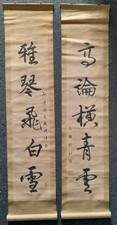 高論橫青雲
雅琴飛白雪